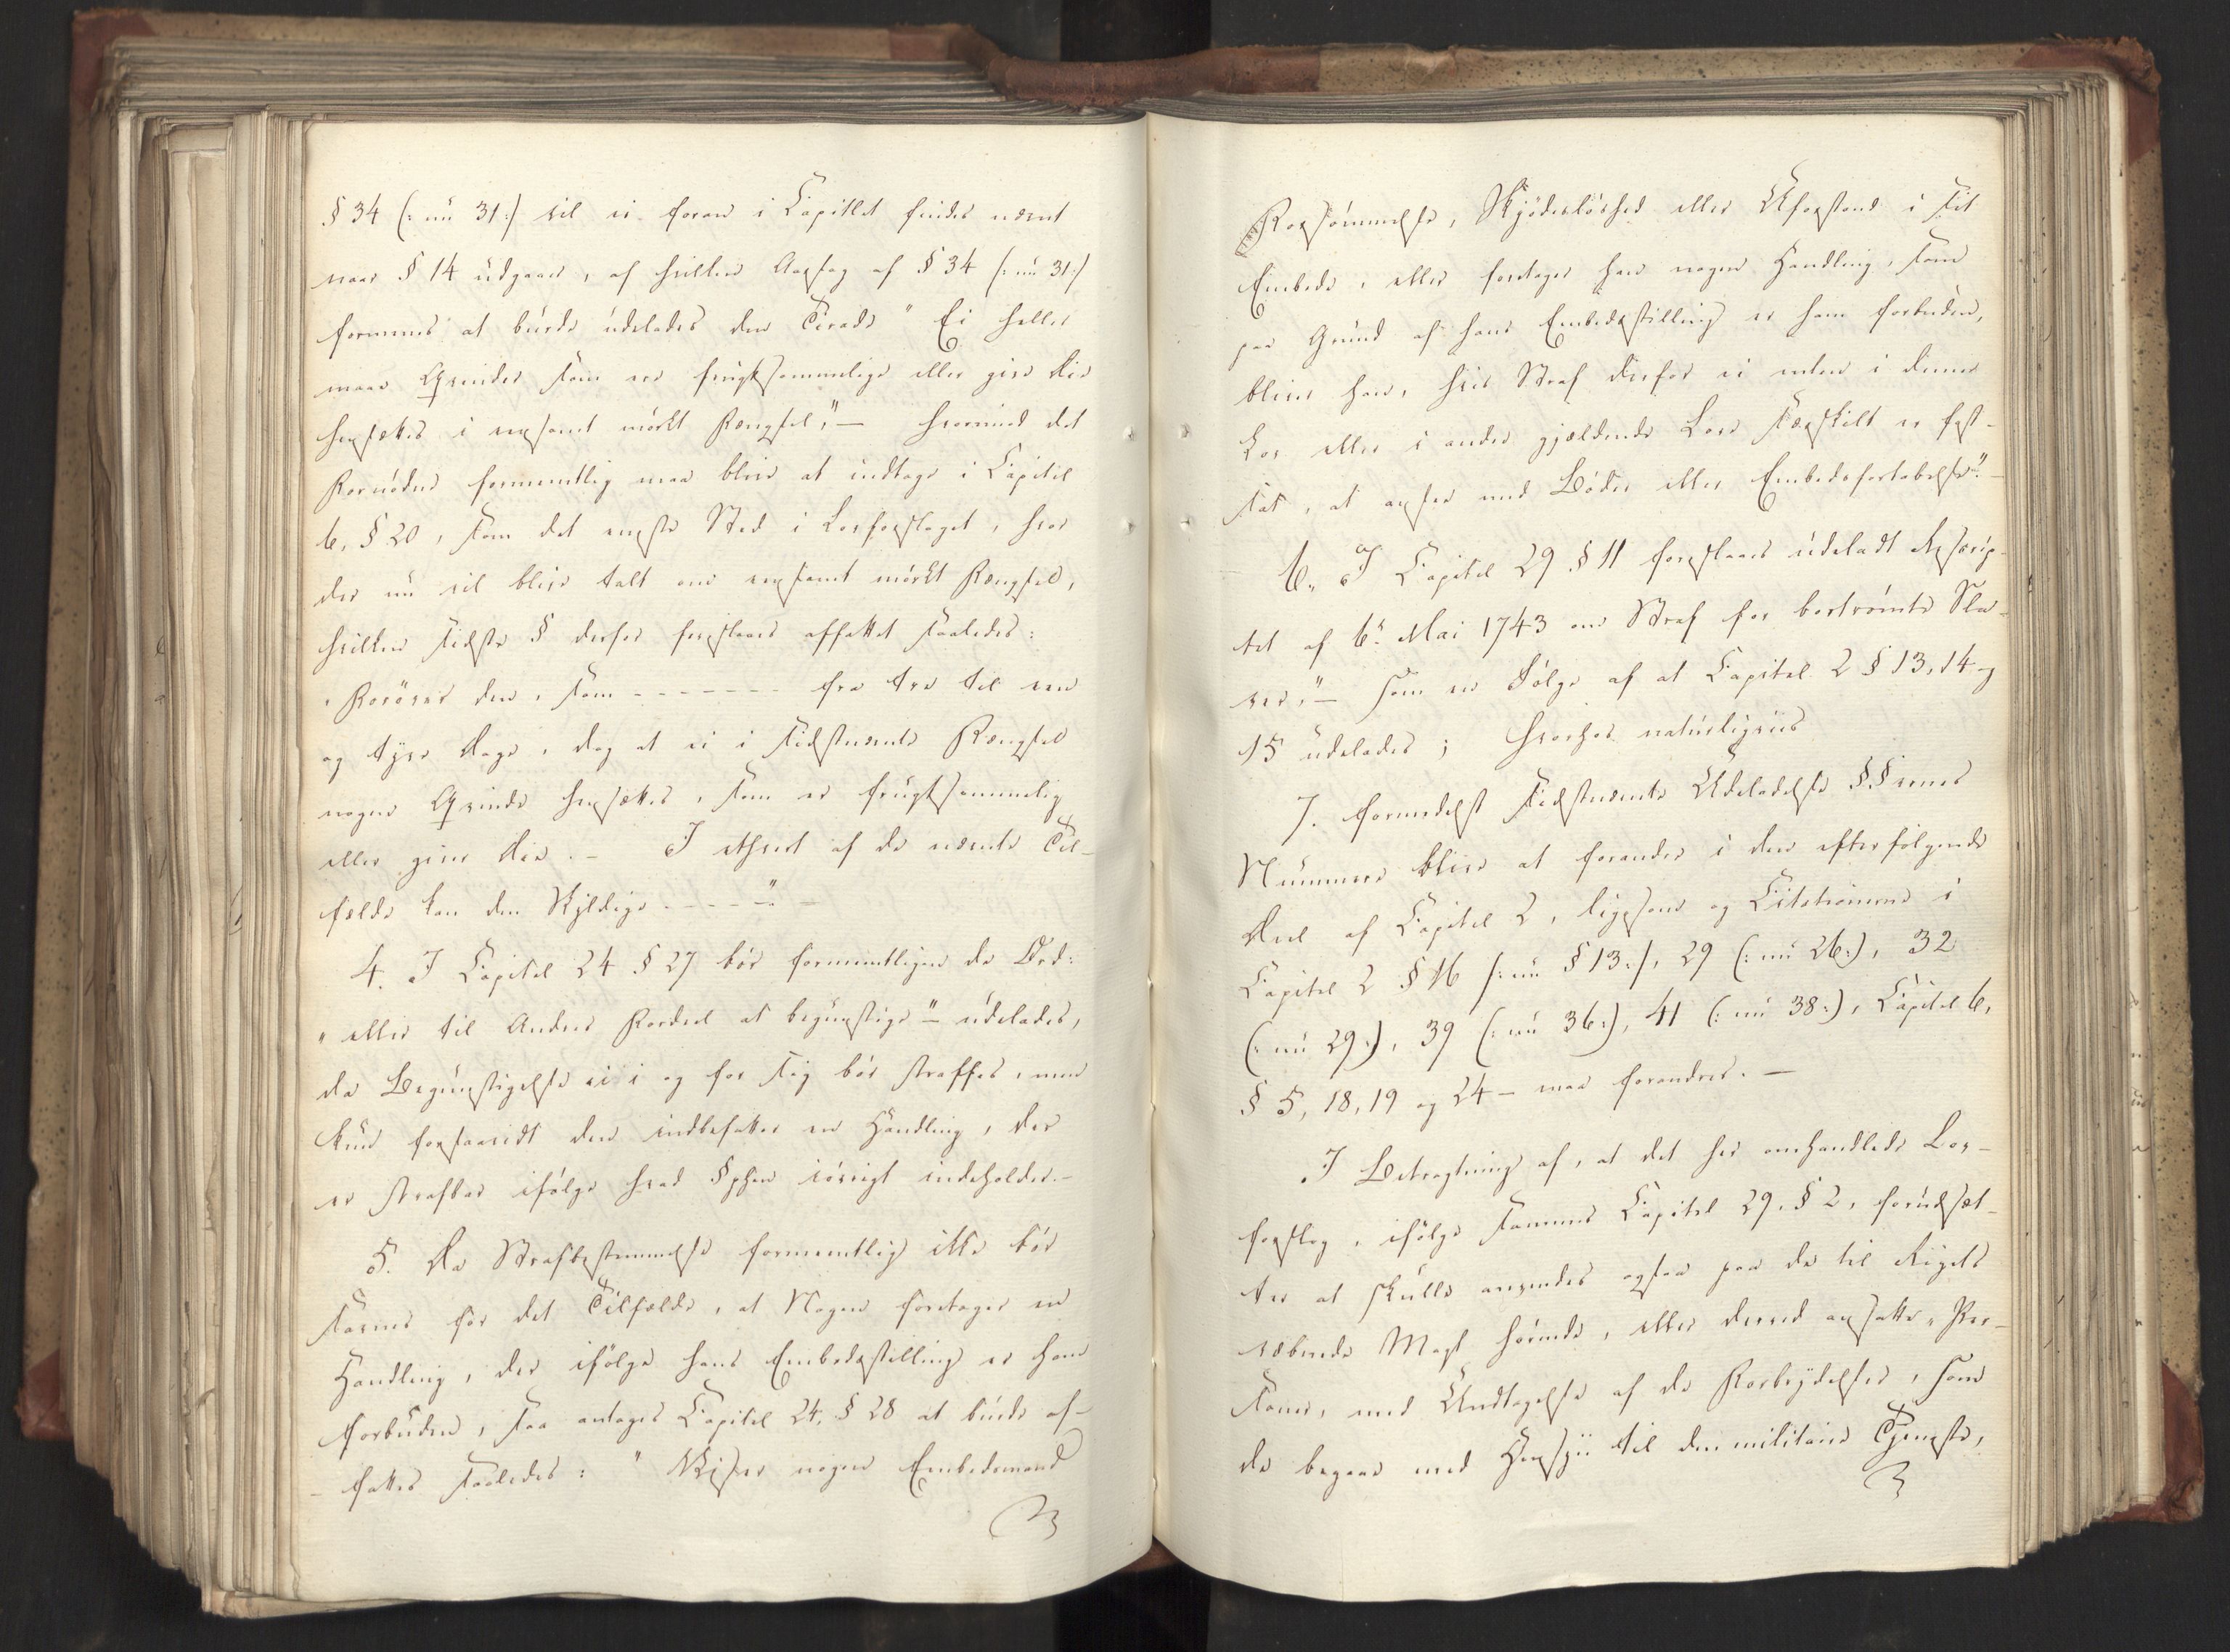 § 34 (: nu 31:) vil ei foran i Capitlet findes nævnt
naar § 14 udgaaer, af hvilken Aarsag af § 34 (: nu 31:)
formenes at burde udelades den Periode "Ei heller
maae Qvinder som ere frugtsommelige eller give Die
hensættes i eensomt mørkt Fængsel," — hvorimod det
Fornødne formeentlig maa blive at indtage i Capitel
6, § 20, som det eneste Sted i Lovforslaget, hvor
der nu vil blive talt om eensomt mørkt Fængsel,
hvilken sidste § derfor foreslaaes affattet saaledes:
"Forøver den, som - - - - - - - fra tre til een
og tyve Dage, dog at ei i sidstnævnte Fængsel
nogen Qvinde hensættes, som er frugtsommelig
eller giver Die. — I ethvert af de nævnte Til-
fælde kan den Skyldige - - - - -" —
4. I Capitel 24 § 27 bør formeentligen de Ord:
"eller til Andres Fordeel at begunstige" — udelades,
da Begunstigelse ei i og for sig bør straffes, men
kun forsaavidt den indbefatter en Handling, der
er strafbar ifølge hvad §phen iøvrigt indeholder. —
5. Da Strafbestemmelse formeentlig ikke bør
savnes for det Tilfælde, at Nogen foretager en
Handling, der ifølge hans Embedsstilling er ham
forbuden, saa antages Capitel 24, § 28 at burde af-
- fattes saaledes: "Viser nogen Embedsmand
Forsømmelse, Skjødesløshed eller Uforstand i sit
Embede, eller foretager han nogen Handling, som
paa Grund af hans Embedsstilling er ham forbuden,
bliver han, hvis Straf derfor ei enten i denne
Lov eller i andre gjældende Love særskilt er fast-
sat, at ansee med Bøder eller Embedsfortabelse". —
6. I Capitel 29 § 11 foreslaaes udeladt "Rescrip-
tet af 6te Mai 1743 om Straf for bortrømte Sla-
ver," — som en Følge af at Capitel 2 § 13, 14 og
15 udelades; hvorhos naturligviis
7. formedelst sidstnævnte Udeladelse §§ernes
Nummere blive at forandre i den efterfølgende
Deel af Capitel 2, ligesom og Citationerne i
Capitel 2 § 16 (: nu § 13:), 29 (: nu 26:), 32
(: nu 29:), 39 (: nu 36:), 41 (: nu 38:), Capitel 6,
§ 5, 18, 19 og 24 — maa forandres. —
I Betragtning af, at det her omhandlede Lov-
forslag, ifølge sammes Capitel 29, § 2, forudsæt-
ter at skulle anvendes ogsaa paa de til Rigets
væbnede Magt hørende, eller derved ansatte, Per-
soner, med Undtagelse af de Forbrydelser, som
de begaae med Hensyn til den militaire Tjeneste,